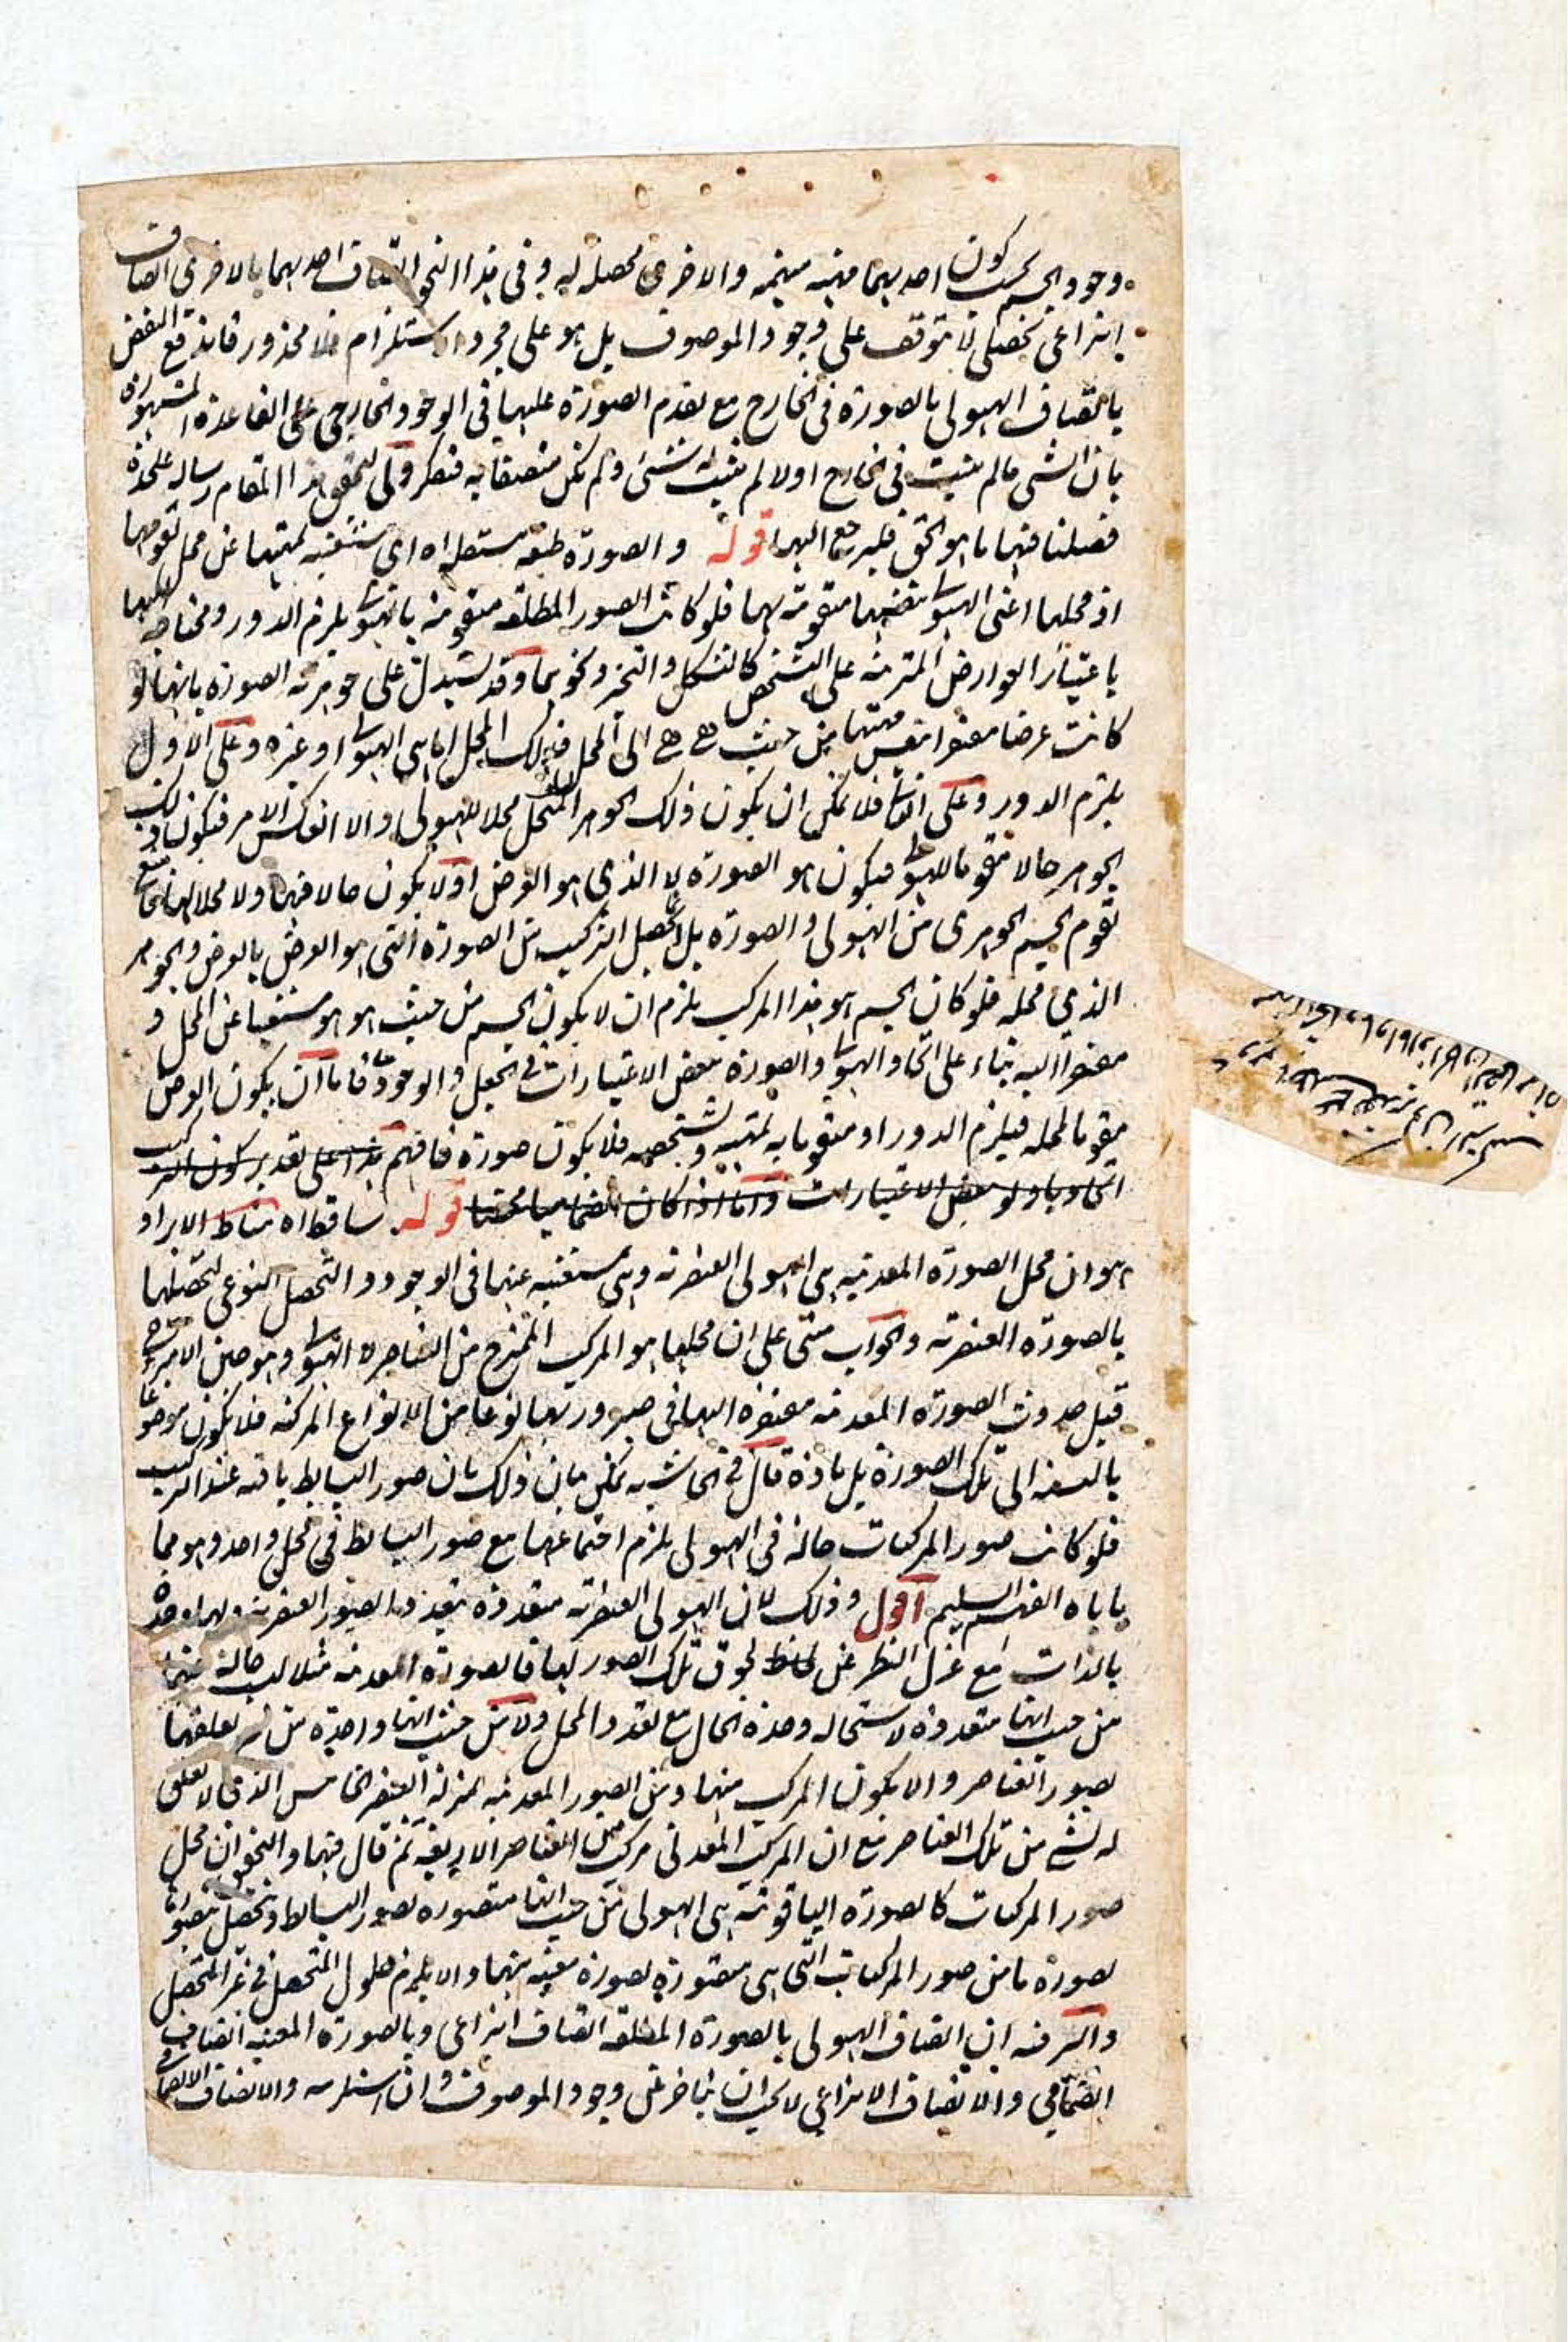 وجود الجسم بحسب كون احديهما مهية مبهمة والاخرى محصلة له وفى هذا النحو اتصاف احديهما بالاخرى اتصاف
انتزاعى تحصلى لا يتوقف على وجود الموصوف بل هو على مجرد الاستلزام فلا محذور فاندفع النقض
باتصاف الهيولى بالصورة فى الخارج مع تقدم الصورة عليها فى الوجود الخارجى على القاعدة المشهورة
بان الشى مالم يثبت فى الخارج اولا لم يثبت له شئ ولم يكن متصفا به فتفكر ولى لتحقيق هذا المقام رسالة عليحدة
فصلنا فيها ما هو الحق فليرجع اليها قوله والصورة طبيعة مستقلة اه اى مستغنية لمهيتها عن محل تقومها
اذ محلها اعنى الهيولى بنفسها متقومة بها فلو كانت الصور المطلقة متقومة بالهيولى يلزم الدور ومحتاجة اليها
باعتبار العوارض المترتبة على التشخص كالتشكل والتحيز ونحوهما وقد يستدل على جوهرية الصورة بانها لو
كانت عرضا مفتقرا بنفس مهيتها من حيث هى هى الى المحل فذلك المحل اما هى الهيولى او غيره وعلى الاول
يلزم الدور وعلى الثانى فلا يمكن ان يكون ذلك الجوهر المحل محلا للهيولى والا انعكس الامر فيكون ذلك
الجوهر حالا مقوما للهيولى فيكون هو الصورة لا الذى هو العرض اولا يكون حالا فيها ولا محلا لها فامتنع
تقوم الجسم الجوهرى من الهيولى والصورة بل انما يحصل التركيب من الصورة التى هو العرض بالعرض والجوهر
الذى محله فلو كان الجسم هو هذا المركب يلزم ان لا يكون الجسم من حيث هو هو مستغنيا عن المحل و
مفتقرا اليه بناء على اتحاد الهيولى والصورة ببعض الاعتبارات فى الجعل والوجود فاما ان يكون العرض
مقوما لمحله فيلزم الدور او متقوما به لمهيته وتشخصه فلا يكون صورة فافهم هذا على تقدير كون التركيب
اتحاديا ولو ببعض الاعتبارات واما اذا كان انضماميا محضا قوله ساقط اه مناط الايراد
هو ان محل الصورة المعدنية هى الهيولى العنصرية وهى مستغنية عنها فى الوجود والتحصل النوعى لتحصلها
بالصورة العنصرية والجواب مبنى على ان محلها هو المركب الممتزج من العناصر لا الهيولى وهو حين الامتزاج
قبل حدوث الصورة المعدنية مفتقرة اليها فى صيرورتها نوعا من الانواع المركبة فلا يكون موضوعا
بالنسبة الى تلك الصورة بل مادة قال فى الحاشية يمكن بيان ذلك بان صور البسايط باقية عند التركيب
فلو كانت صور المركبات حالة فى الهيولى يلزم اجتماعها مع صور البسايط فى محل واحد وهو مما
ياباه الفهم السليم اقول وذلك لان الهيولى العنصرية متعددة بتعدد الصور العنصرية ولها وحدة
بالذات مع عزل النظر عن لحوق تلك الصور لها فالصورة المعدنية مثلا ليست حالة فيها
من حيث انها متعددة لاستحالة وحدة الحال مع تعدد المحل ولا من حيث انها واحدة من غير تعلقها
بصور العناصر والا يكون المركب منها ومن الصور المعدنية بمنزلة العنصر الخامس الذى لا تعلق
له بشئ من تلك العناصر مع ان المركب المعدنى مركب من العناصر الاربعة ثم قال فيها والتحقيق ان محل
صور المركبات كالصورة الياقوتية هى الهيولى من حيث انها متصورة بصور البسايط وتحصل متصورة
بصورة ما من صور المركبات التى هى متصورة بصورة معينة منها والا يلزم حلول المتحصل فى غير المتحصل
والسر فيه ان اتصاف الهيولى بالصورة المطلقة اتصاف انتزاعى وبالصورة المعينة اتصاف
انضمامى والاتصاف الانتزاعى لا يجب ان يتاخر عن وجود الموصوف وان استلزمه والاتصاف الانضمامى